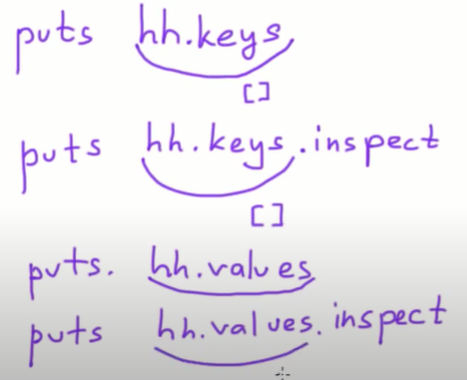 puts hh.keys
[]
puts hh.keys.inspect
[]
puts. hh.values
puts hh.values.inspect